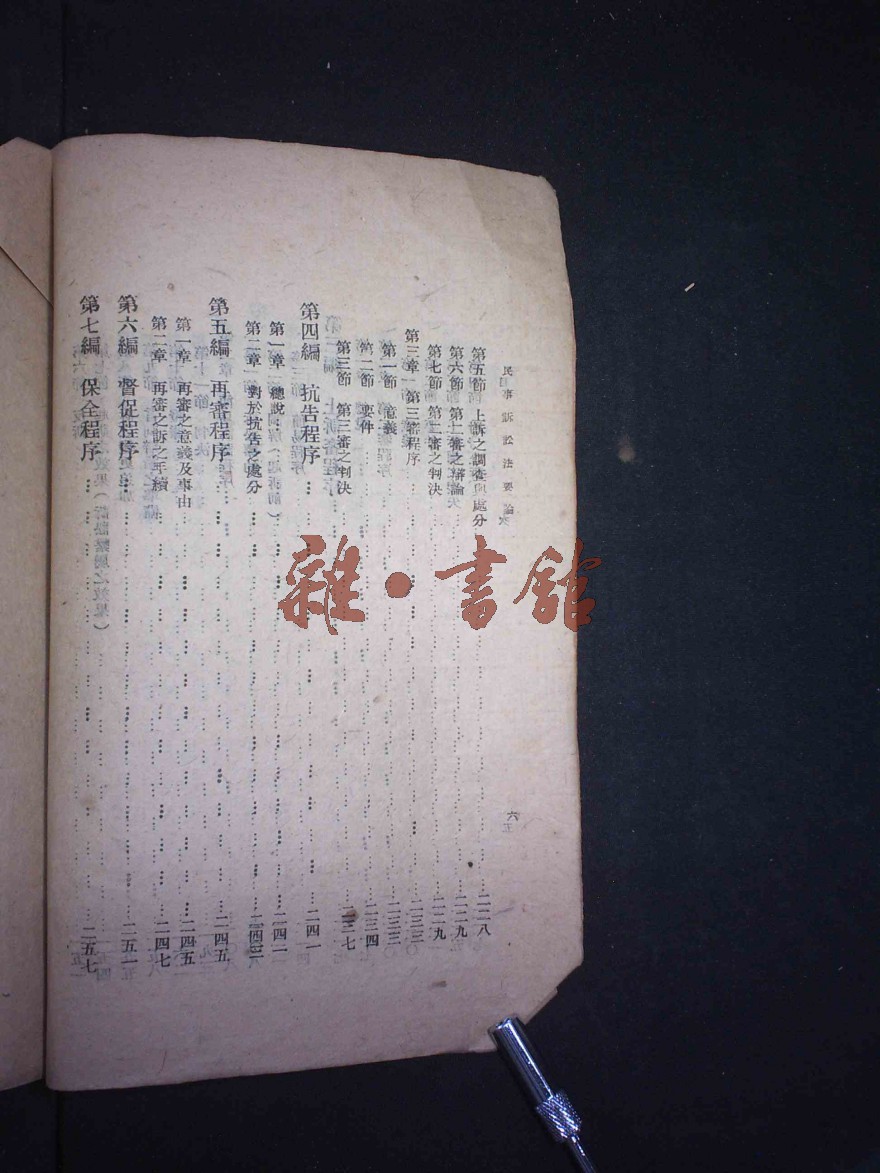 民事訴訟法要論
第五節 上訴之調查與處分……二二八
第六節 第二審之審論……二二九
第七節 第二審之判決……二二九
第三章 第三審程序……二三三
第一節 意義……二三三
第二節 要件……二三四
第三節 第三審之判決……二三七
第四編 抗告程序……二四一
第一章 總說……二四二
第二章 對於抗告之處分……二四三
第五編 再審程序……二四五
第一章 再審之意義及事由……二四五
第二章 再審之訴之手續……二四七
第六編 督促程序……二五一
第七編 保全程序……二五七
雜·書館